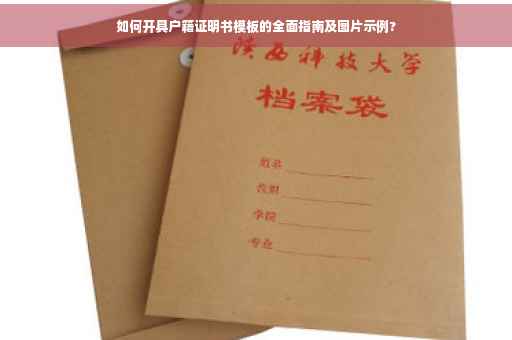 如何开具户籍证明书模板的全面指南及图片示例?
陕西科技大学
档案袋
姓名
学院
专业